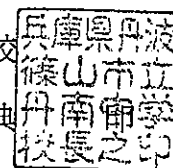 兵庫県丹波
篠山市立
丹南中學
校長之印